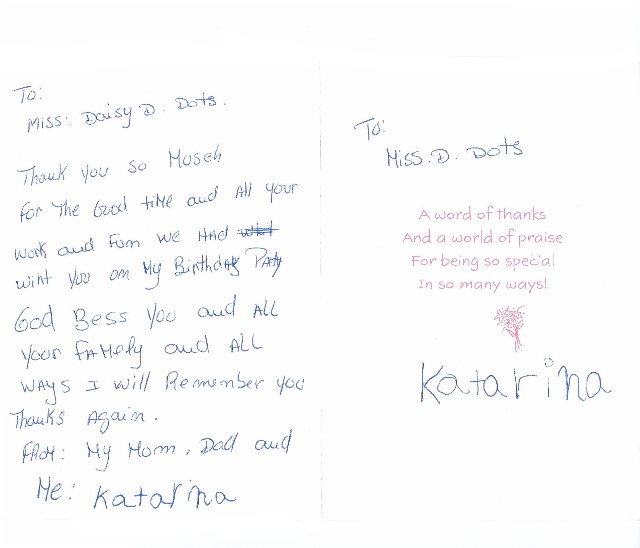 To:
Miss: Daisy D. Dots.
Thank you so Musch
For The Good time and All your
work and Fum we HAD
wiht you om My Birthday Paty
God Bess you and ALL
your FAMely and ALL
WAYS I will Remember you
Thanks Again.
FROM: My Mom, Dad and
Me: Katarina
To:
Miss. D. Dots
A word of thanks
And a world of praise
For being so special
In so many ways!
Katarina